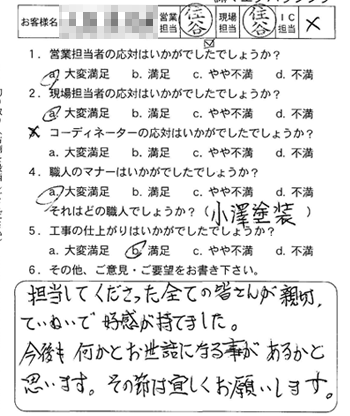 お客様名 営業担当 住谷 現場担当 住谷 IC担当 ×
1．営業担当者の応対はいかがでしたでしょうか？
a. 大変満足 b. 満足 c. やや不満 d. 不満
2．現場担当者の応対はいかがでしたでしょうか？
a. 大変満足 b. 満足 c. やや不満 d. 不満
× コーディネーターの応対はいかがでしたでしょうか？
a. 大変満足 b. 満足 c. やや不満 d. 不満
4．職人のマナーはいかがでしたでしょうか？
a. 大変満足 b. 満足 c. やや不満 d. 不満
それはどの職人でしょうか？（小澤塗装）
5．工事の仕上がりはいかがでしたでしょうか？
a. 大変満足 b. 満足 c. やや不満 d. 不満
6．その他、ご意見・ご要望をお書き下さい。
担当してくださった全ての皆さんが親切、
ていねいで好感が持てました。
今後も何かとお世話になる事があるかと
思います。その節は宜しくお願いします。